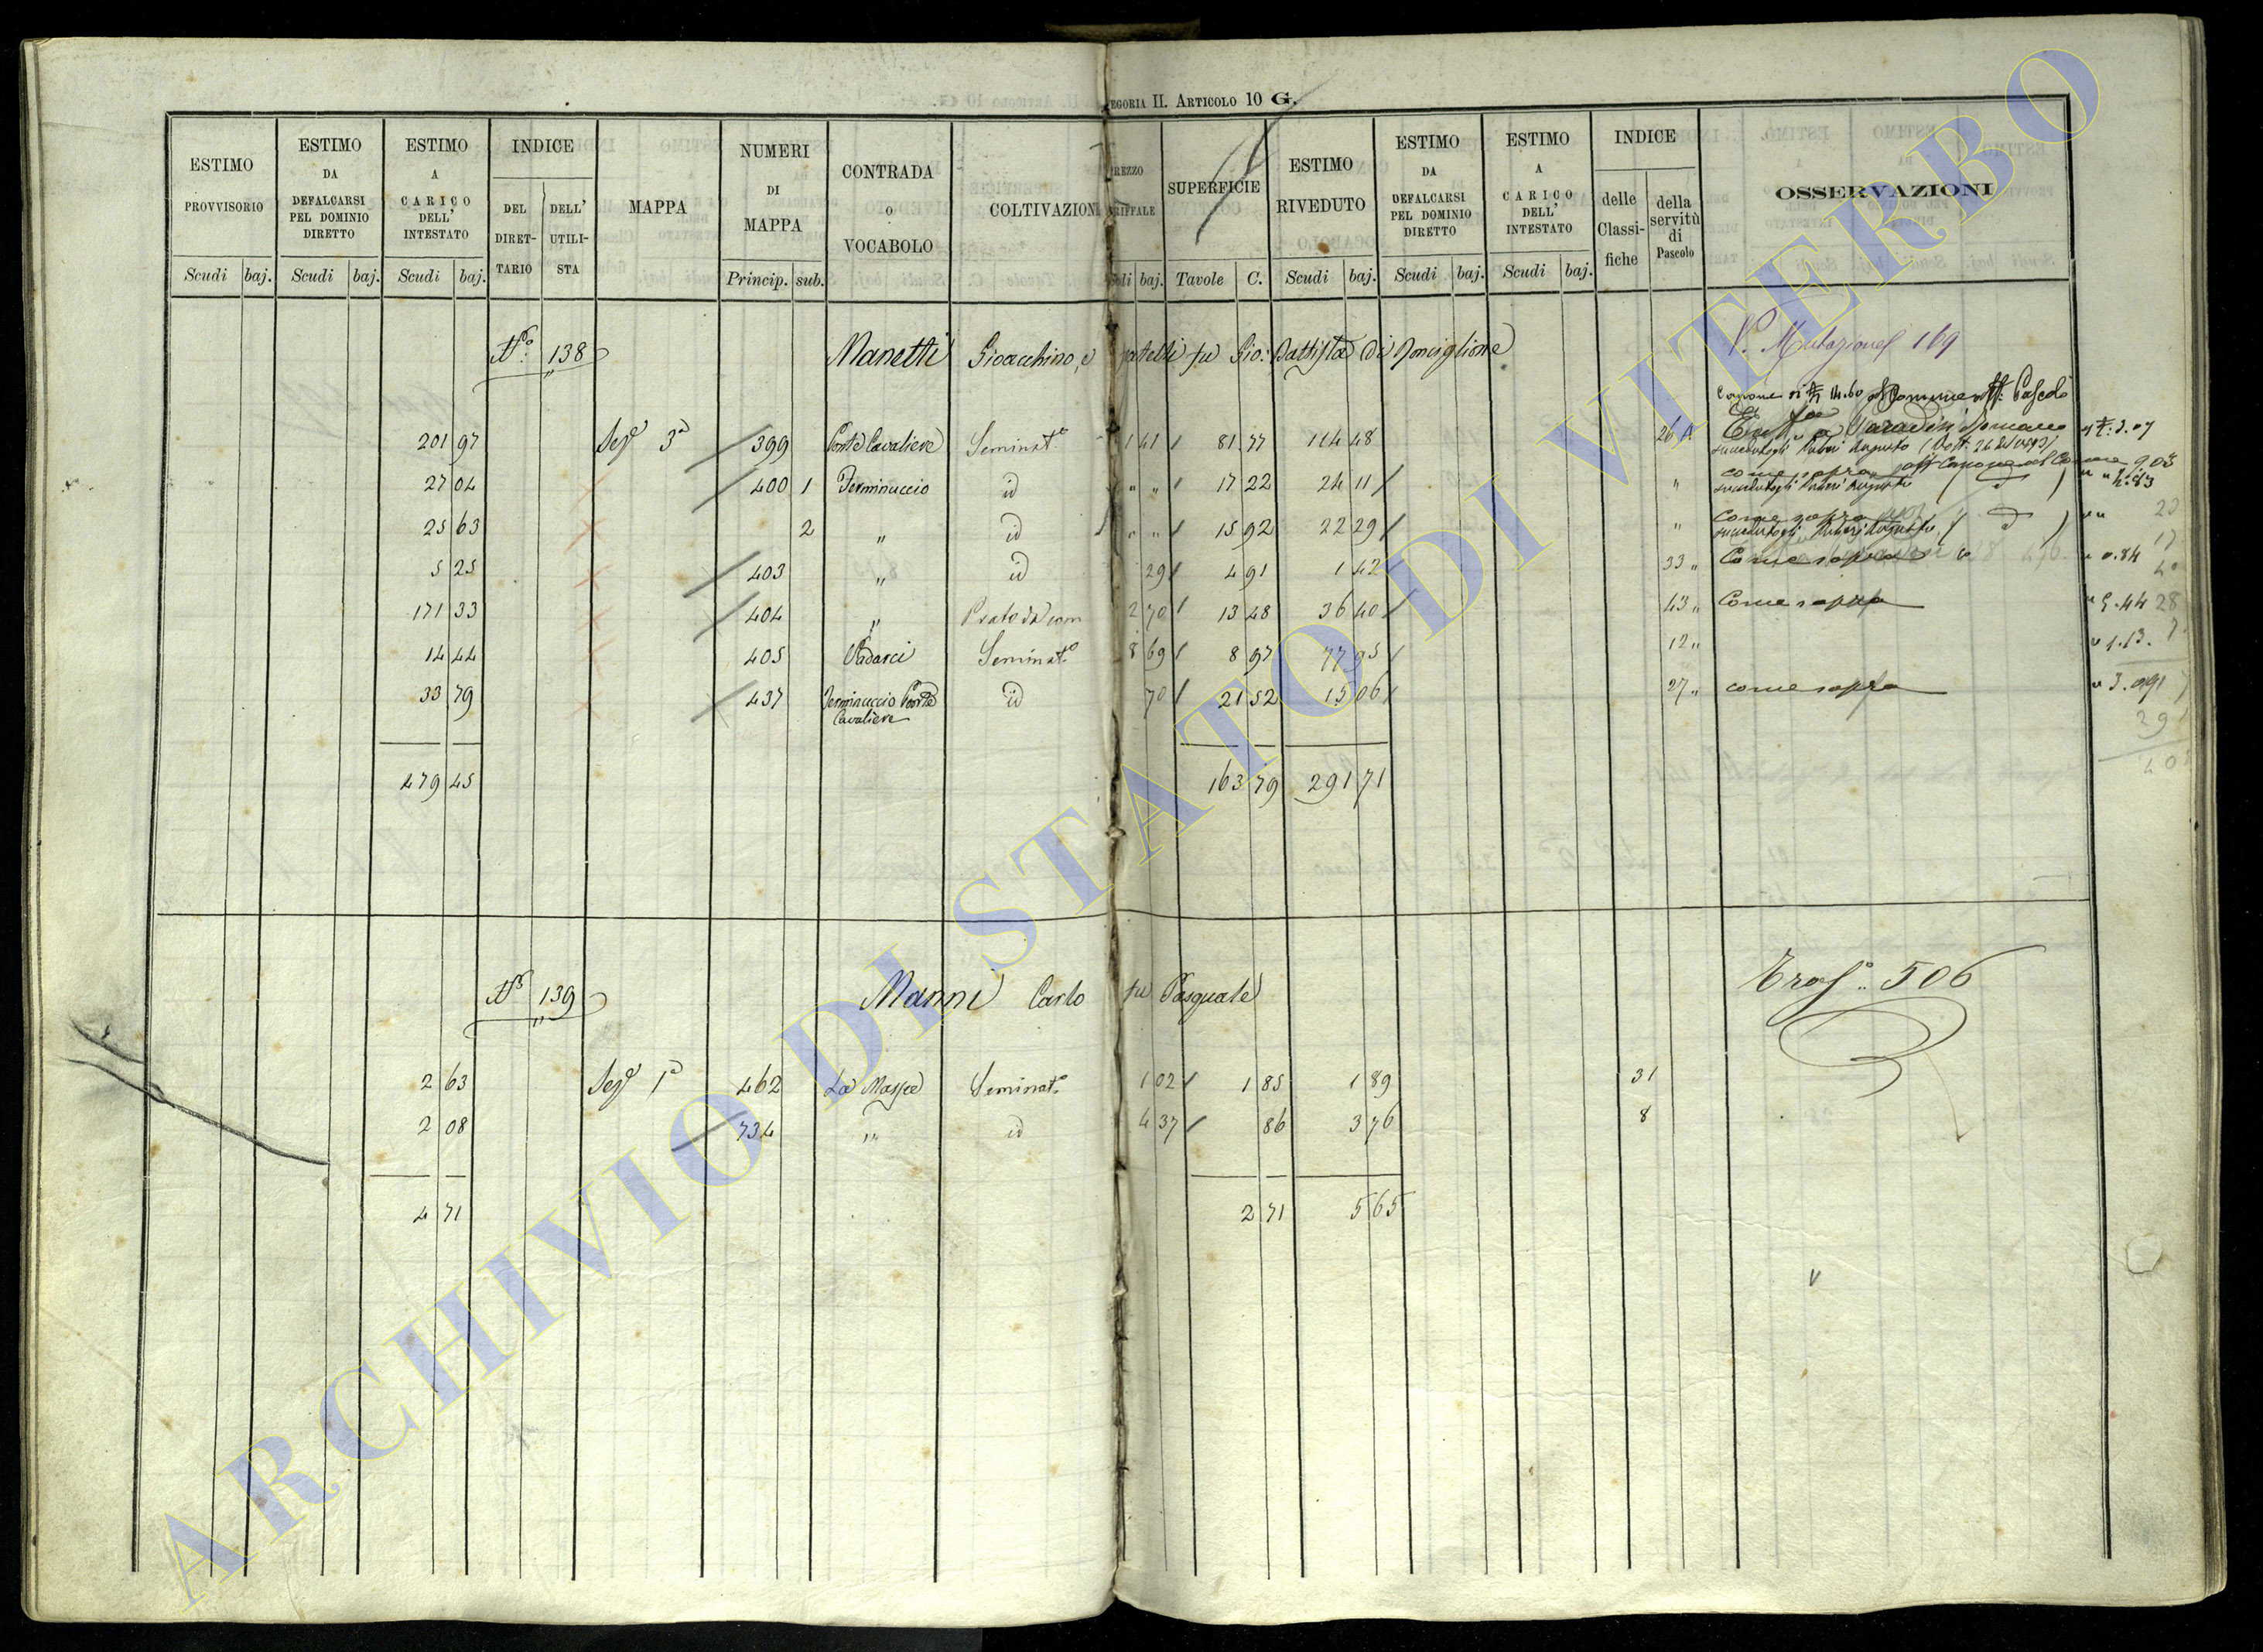 EGORIA II. ARTICOLO 10 G.
ESTIMO PROVVISORIO Scudi baj.
ESTIMO DA DEFALCARSI PEL DOMINIO DIRETTO Scudi baj.
ESTIMO A CARICO DELL' INTESTATO Scudi baj.
INDICE DEL DIRET-TARIO DELL' UTILI-STA
MAPPA
NUMERI DI MAPPA Princip. sub.
CONTRADA O VOCABOLO
COLTIVAZIONI
REZZO ARIFFALE udi baj.
SUPERFICIE Tavole C.
ESTIMO RIVEDUTO Scudi baj.
ESTIMO DA DEFALCARSI PEL DOMINIO DIRETTO Scudi baj.
ESTIMO A CARICO DELL' INTESTATO Scudi baj.
INDICE delle Classi-fiche della servitù di Pascolo
OSSERVAZIONI
N.° 138 Manetti Gioacchino, e fratelli fu Gio: Battista di Ronciglione V. Mutazione 169
201 97 Sez.e 3a 399 Ponte Cavaliere Seminat.o 1 41 81 77 114 48 26 A
27 04 400 1 Terminuccio id " " 17 22 24 11 " come sopra
25 63 2 " id " " 15 92 22 29 " come sopra
5 25 403 " id 29 4 91 1 42 33 " Come sopra " 0.84
171 33 404 " Prato da 2 70 13 48 36 40 43 " Come sopra
14 44 405 Seminat.o 8 69 8 97 77 95 12 " " 1.13
33 79 437 Terminuccio Ponte Cavaliere id 70 21 52 15 06 27 " come sopra
479 45 163 79 291 71
N.° 139 Manni Carlo fu Pasquale Tras.o 506
2 63 Sez.e 1a 462 La Massa Seminat.o 1 02 1 85 1 89 31
2 08 734 " id 4 37 86 3 76 8
4 71 2 71 5 65
ARCHIVIO DI STATO DI VITERBO